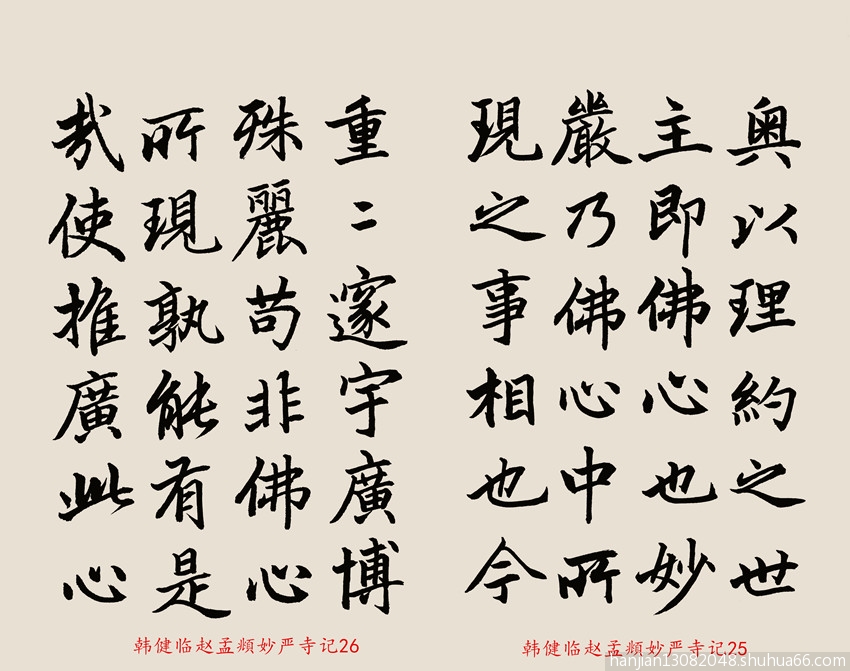 奥以理約之世
主即佛心也妙
嚴乃佛心中所
現之事相也今
韩健临赵孟頫妙严寺记25
重二邃宇廣博
殊麗苟非佛心
所現孰能有是
哉使推廣此心
韩健临赵孟頫妙严寺记26
hanjian13082048.shuhua66.com